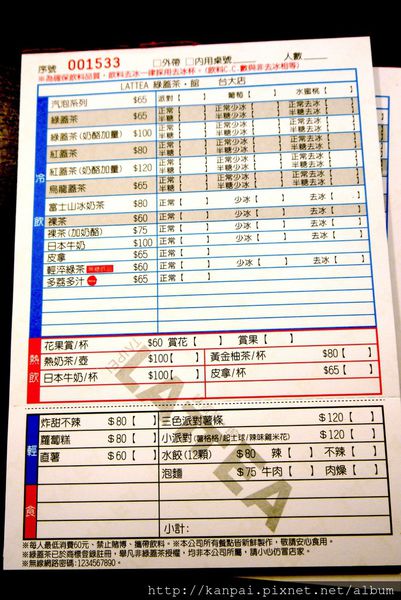 序號 001533 □外帶 □內用桌號 人數
※為確保飲料品質，飲料去冰一律採用去冰杯。(飲料C.C.數與非去冰相等)
LATTEA 綠蓋茶‧館 台大店
冷飲
汽泡系列 $65 派對【 】 葡萄【 】 水蜜桃【 】
綠蓋茶 $65 正常【 】 正常少冰【 】 正常去冰【 】
半糖【 】 半糖少冰【 】 半糖去冰【 】
綠蓋茶(奶酪加量) $100 正常【 】 正常少冰【 】 正常去冰【 】
半糖【 】 半糖少冰【 】 半糖去冰【 】
紅蓋茶 $80 正常【 】 正常少冰【 】 正常去冰【 】
半糖【 】 半糖少冰【 】 半糖去冰【 】
紅蓋茶(奶酪加量) $120 正常【 】 正常少冰【 】 正常去冰【 】
半糖【 】 半糖少冰【 】 半糖去冰【 】
烏龍蓋茶 $65 正常【 】 正常少冰【 】 正常去冰【 】
半糖【 】 半糖少冰【 】 半糖去冰【 】
富士山冰奶茶 $80 正常【 】 少冰【 】 去冰【 】
裸茶 $60 正常【 】 少冰【 】 去冰【 】
裸茶(加奶酪) $75 正常【 】 少冰【 】 去冰【 】
日本牛奶 $100 正常【 】
皮拿 $65 正常【 】 少冰【 】 去冰【 】
輕淬綠茶 $60 正常【 】 少冰【 】 去冰【 】
多荔多汁 $65 正常【 】
熱飲
花果賞/杯 $60 賞花【 】 賞果【 】
熱奶茶/壺 $100【 】 黃金柚茶/杯 $80【 】
日本牛奶/杯 $100【 】 皮拿/杯 $65【 】
TAIPEI
LATTEA
輕食
炸甜不辣 $80【 】 三色派對薯條 $120【 】
蘿蔔糕 $80【 】 小派對(薯格格/起士球/辣味雞米花) $120【 】
直薯 $60【 】 水餃(12顆) $80 辣【 】 不辣【 】
泡麵 $75 牛肉【 】 肉燥【 】
小計:
※每人最低消費60元、禁止賭博、攜帶飲料。※本公司所有餐點皆新鮮製作，敬請安心食用。
※綠蓋茶已於商標登錄註冊，舉凡非綠蓋茶授權，均非本公司所屬，請小心仿冒店家。
※無線網路密碼:1234567890。
http://kanpai.pixnet.net/album